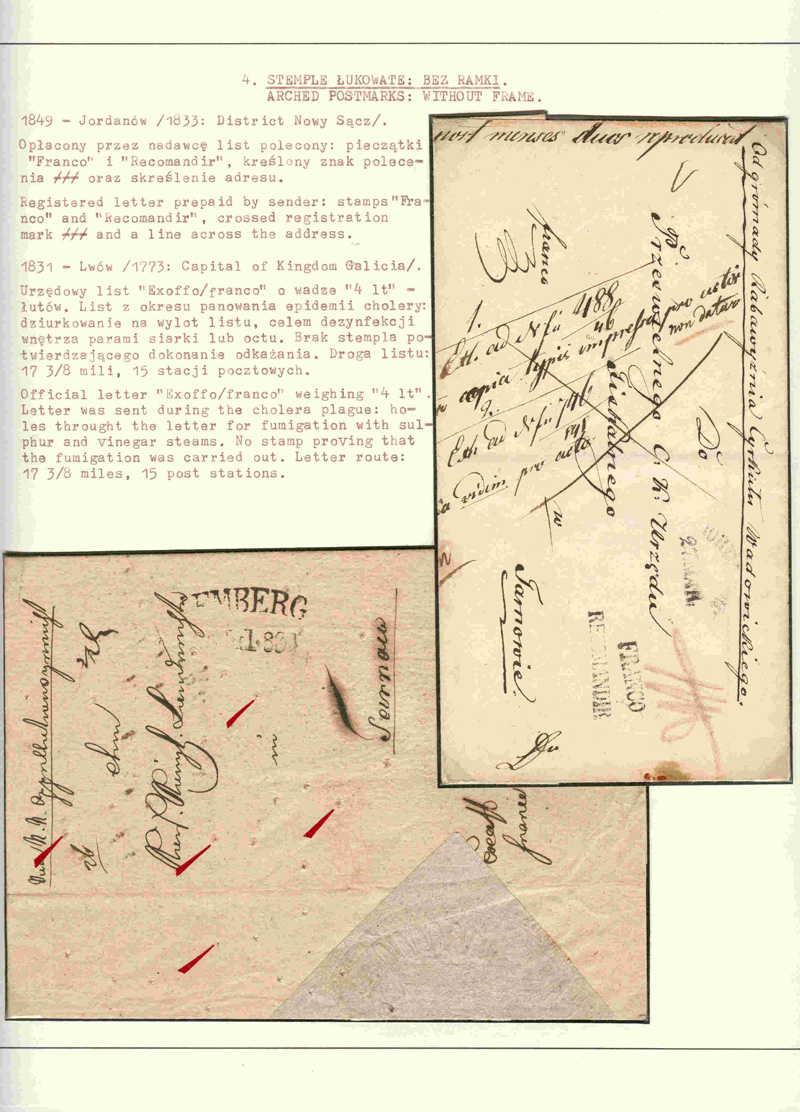 4. STEMPLE ŁUKOWATE: BEZ RAMKI.
ARCHED POSTMARKS: WITHOUT FRAME.
1849 – Jordanów /1833: District Nowy Sącz/.
Opłacony przez nadawcę list polecony: pieczątki
"Franco" i "Recomandir", kreślony znak polece–
nia ⫻⫻ oraz skreślenie adresu.
Registered letter prepaid by sender: stamps"Fra–
nco" and "Recomandir", crossed registration
mark ⫻⫻ and a line across the address.
1831 – Lwów /1773: Capital of Kingdom Galicia/.
Urzędowy list "Exoffo/franco" o wadze "4 lt" –
łutów. List z okresu panowania epidemii cholery:
dziurkowanie na wylot listu, celem dezynfekcji
wnętrza parami siarki lub octu. Brak stempla po–
twierdzającego dokonanie odkażania. Droga listu:
17 3/8 mili, 15 stacji pocztowych.
Official letter "Exoffo/franco" weighing "4 lt".
Letter was sent during the cholera plague: ho–
les throught the letter for fumigation with sul–
phur and vinegar steams. No stamp proving that
the fumigation was carried out. Letter route:
17 3/8 miles, 15 post stations.
menses duos reproducat
Od gromady Rabawyżnia Cyrkułu Wadowickiego.
Do
Przeswietnego C. K. Urzędu
fiskalnego
w
Tarnowie.
franco
1.
Exh. ad Nfū 488
copia typis impressa pro actis
non datur
2.
Exh. ad Nfū 746
vidim pro actis
27. MAR.
FRANCO
RECOMANDIR
EMBERG
in
Tarnow
franco